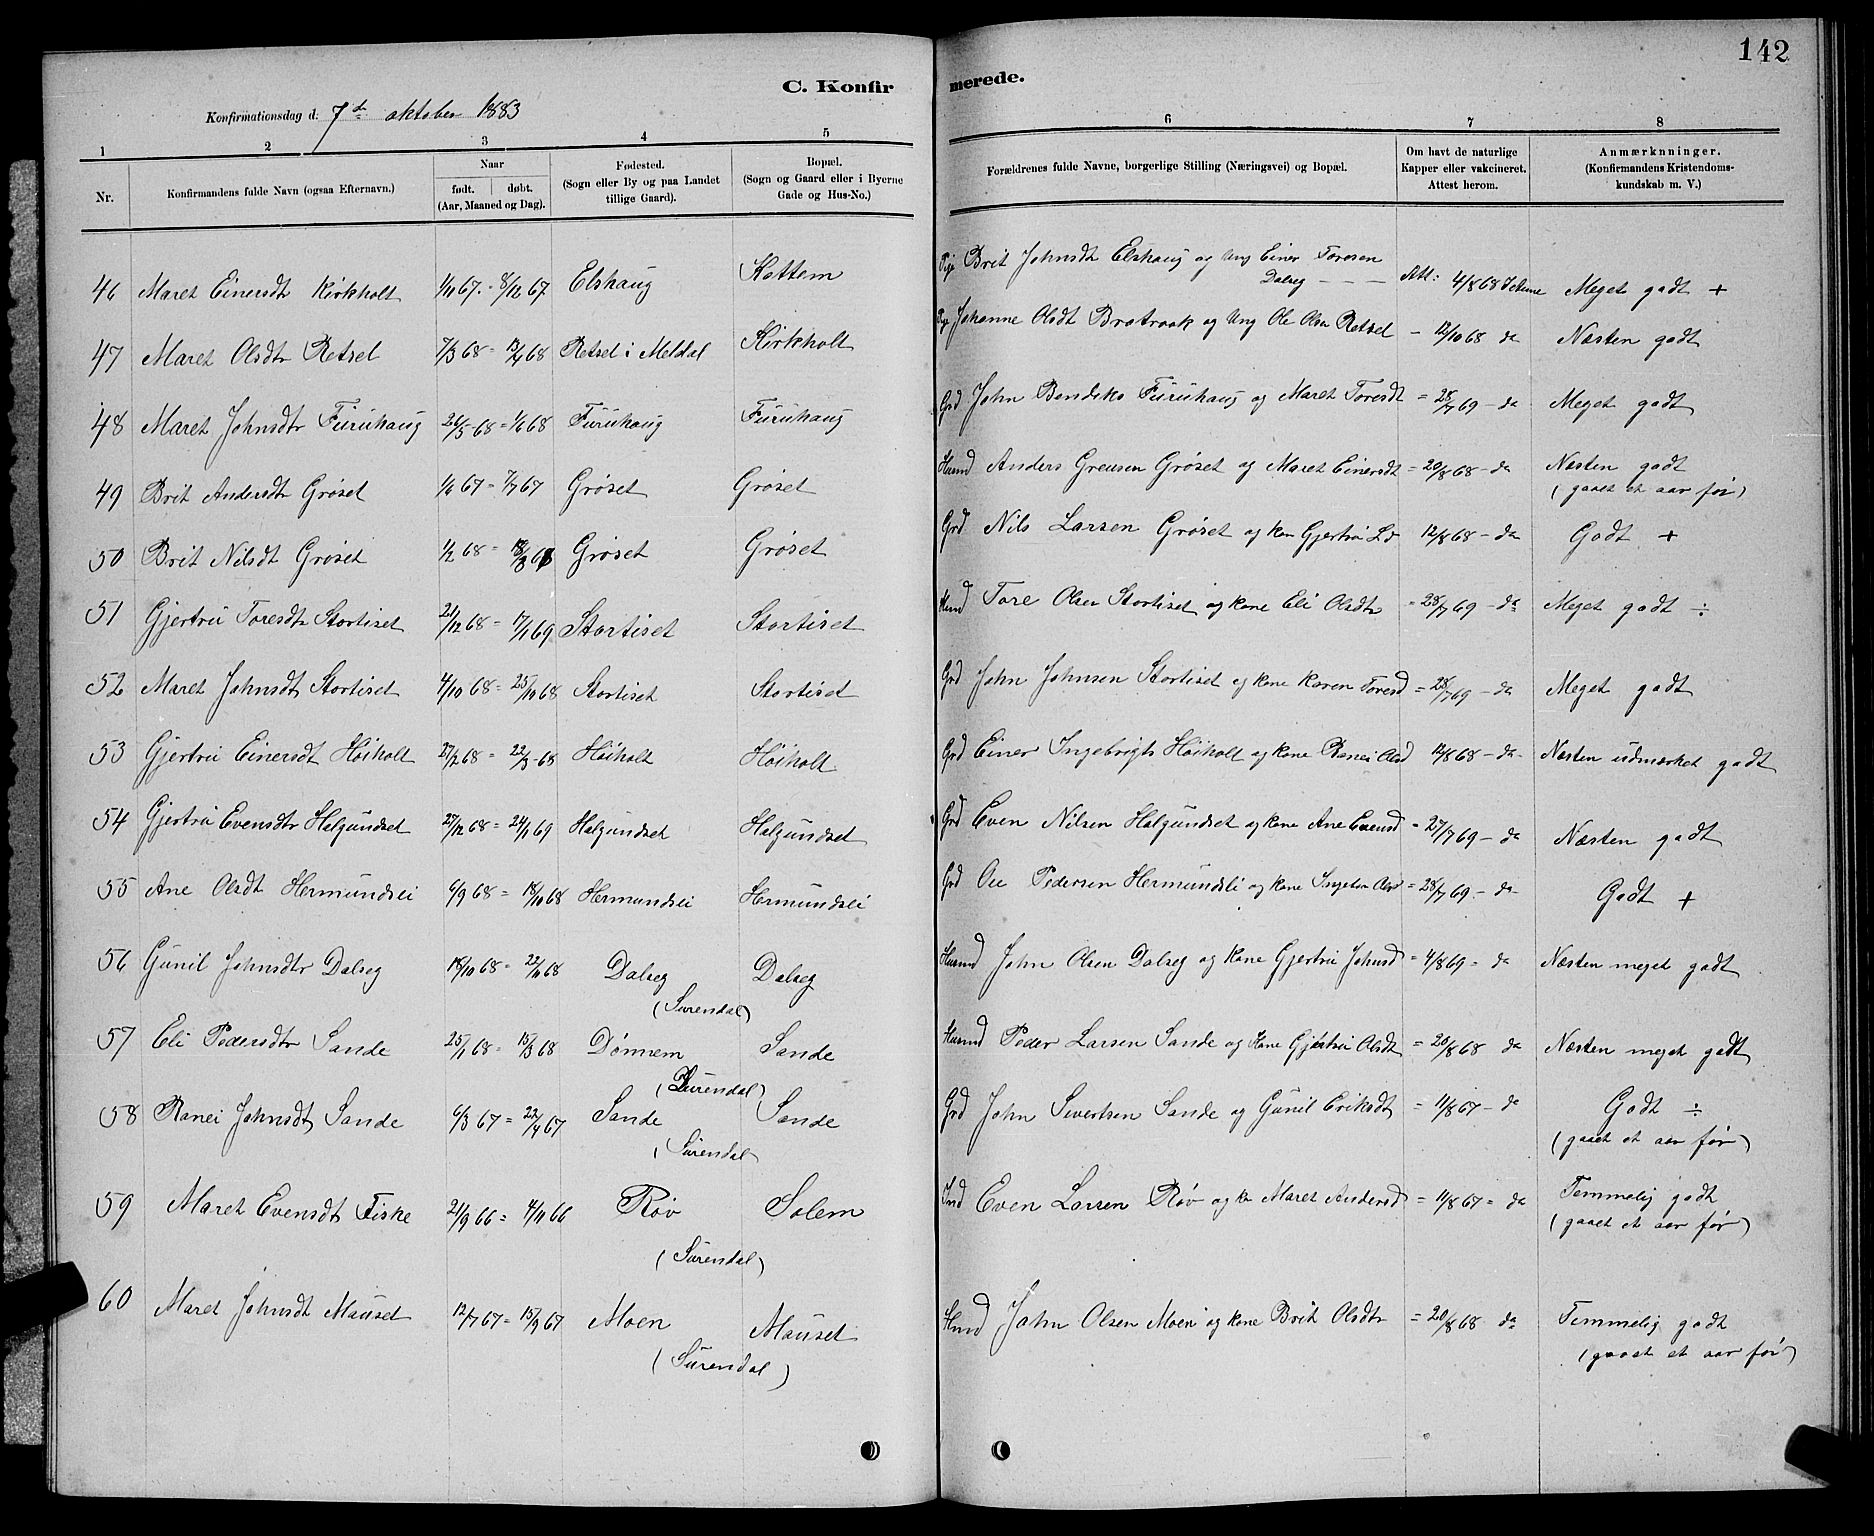 142
C. Konfirmerede.
Konfirmationsdag d. 7de oktober 1883
1 2 3 4 5 6 7 8
Nr.
Konfirmandens fulde Navn (ogsaa Efternavn.)
Naar
født. døbt.
(Aar, Maaned og Dag).
Fødested.
(Sogn eller By og paa Landet
tillige Gaard).
Bopæl.
(Sogn og Gaard eller i Byerne
Gade og Hus-No.)
Forældrenes fulde Navne, borgerlige Stilling (Næringsvei) og Bopæl.
Om havt de naturlige
Kapper eller vakcineret.
Attest herom.
Anmærknninger.
(Konfirmandens Kristendoms-
kundskab m. V.)
46 Maret Einersdtr Kirkholt 1/11 67 - 8/12 67 Elshaug Kattem Pige Brit Johnsdt Elshaug og Ung Einer Toresen Att: 4/8 68 Meget godt +
Dalseg
47 Maret Olsdtr Retsel 7/3 68 = 13/4 68 Retsel i Meldal Kirkholt Pige Johanne Olsdt Bratvaak og Ung Ole Olsn Retsel - 12/10 68 da Næsten godt
48 Maret Johnsdtr Furuhaug 26/5 68 = 1/6 68 Furuhaug Furuhaug Grd John Bendiks Furuhaug og Maret Toresdt = 28/7 69 - da Meget godt
49 Brit Andersdtr Grøset 1/6 67 = 7/7 67 Grøset Grøset Husmd Anders Greusen Grøset og Maret Einersdt = 20/8 68 - da Næsten godt
(gaaet et aar før)
50 Brit Nilsdt Grøset 1/2 68 = 18/3 68 Grøset Grøset Grd Nils Larsen Grøset og kone Gjertru Ld 12/8 68 - da Godt +
51 Gjertru Toresdtr Stortiset 21/12 68 = 17/1 69 Stortiset Stortiset Husmd Tore Olsen Stortiset og kone Eli Olsdtr = 28/7 69 - da Meget godt ÷
52 Maret Johnsdt Stortiset 4/10 68 = 25/10 68 Stortiset Stortiset Grd John Johnsen Stortiset og kone Karen Toresd = 28/7 69 - da Meget godt
53 Gjertru Einersdt Høiholt 27/2 68 = 22/3 68 Høiholt Høiholt Grd Einer Ingebrigts Høiholt og kone Ranei Olsd 12/8 68 - da Næsten udmærket godt
54 Gjertru Evensdtr Halgundset 27/12 68 = 24/1 69 Halgundset Halgundset Grd Even Nilsen Halgundset og kone Ane Evensd = 27/7 69 - da Næsten godt
55 Ane Olsdt Hermundslei 6/9 68 = 18/10 68 Hermundslei Hermundslei Grd Ole Pedersen Hermundslei og kone Ingebor Olsd = 28/7 69 - da Godt +
56 Gunil Johnsdtr Dalseg 18/10 68 = 22/11 68 Dalseg Dalseg Husmd John Olsen Dalseg og kone Gjertru Johnsd = 4/8 69 = da Næsten meget godt
(Surendal)
57 Eli Pedersdtr Sande 25/1 68 = 15/3 68 Dønnem Sande Husmd Peder Larsen Sande og kone Gjertru Olsdt = 20/8 68 da Næsten meget godt
(Surendal)
58 Ranei Johnsdt Sande 6/3 67 = 22/4 67 Sande Sande Grd John Sivertsen Sande og Gunil Eriksdt = 11/8 67 - da Godt ÷
(Surendal) (gaaet et aar før)
59 Maret Evensdt Fiske 21/9 66 = 4/11 66 Røv Solem Ind Even Larsen Røv og ko Maret Andersd = 11/8 67 = da Temmelig godt
(Surendal) (gaaet et aar før)
60 Maret Johnsdt Mauset 12/7 67 = 15/9 67 Moen Mauset Husmd John Olsen Moen og kone Brit Olsdtr = 20/8 68 da Temmelig godt
(Surendal) (gaaet et aar før)